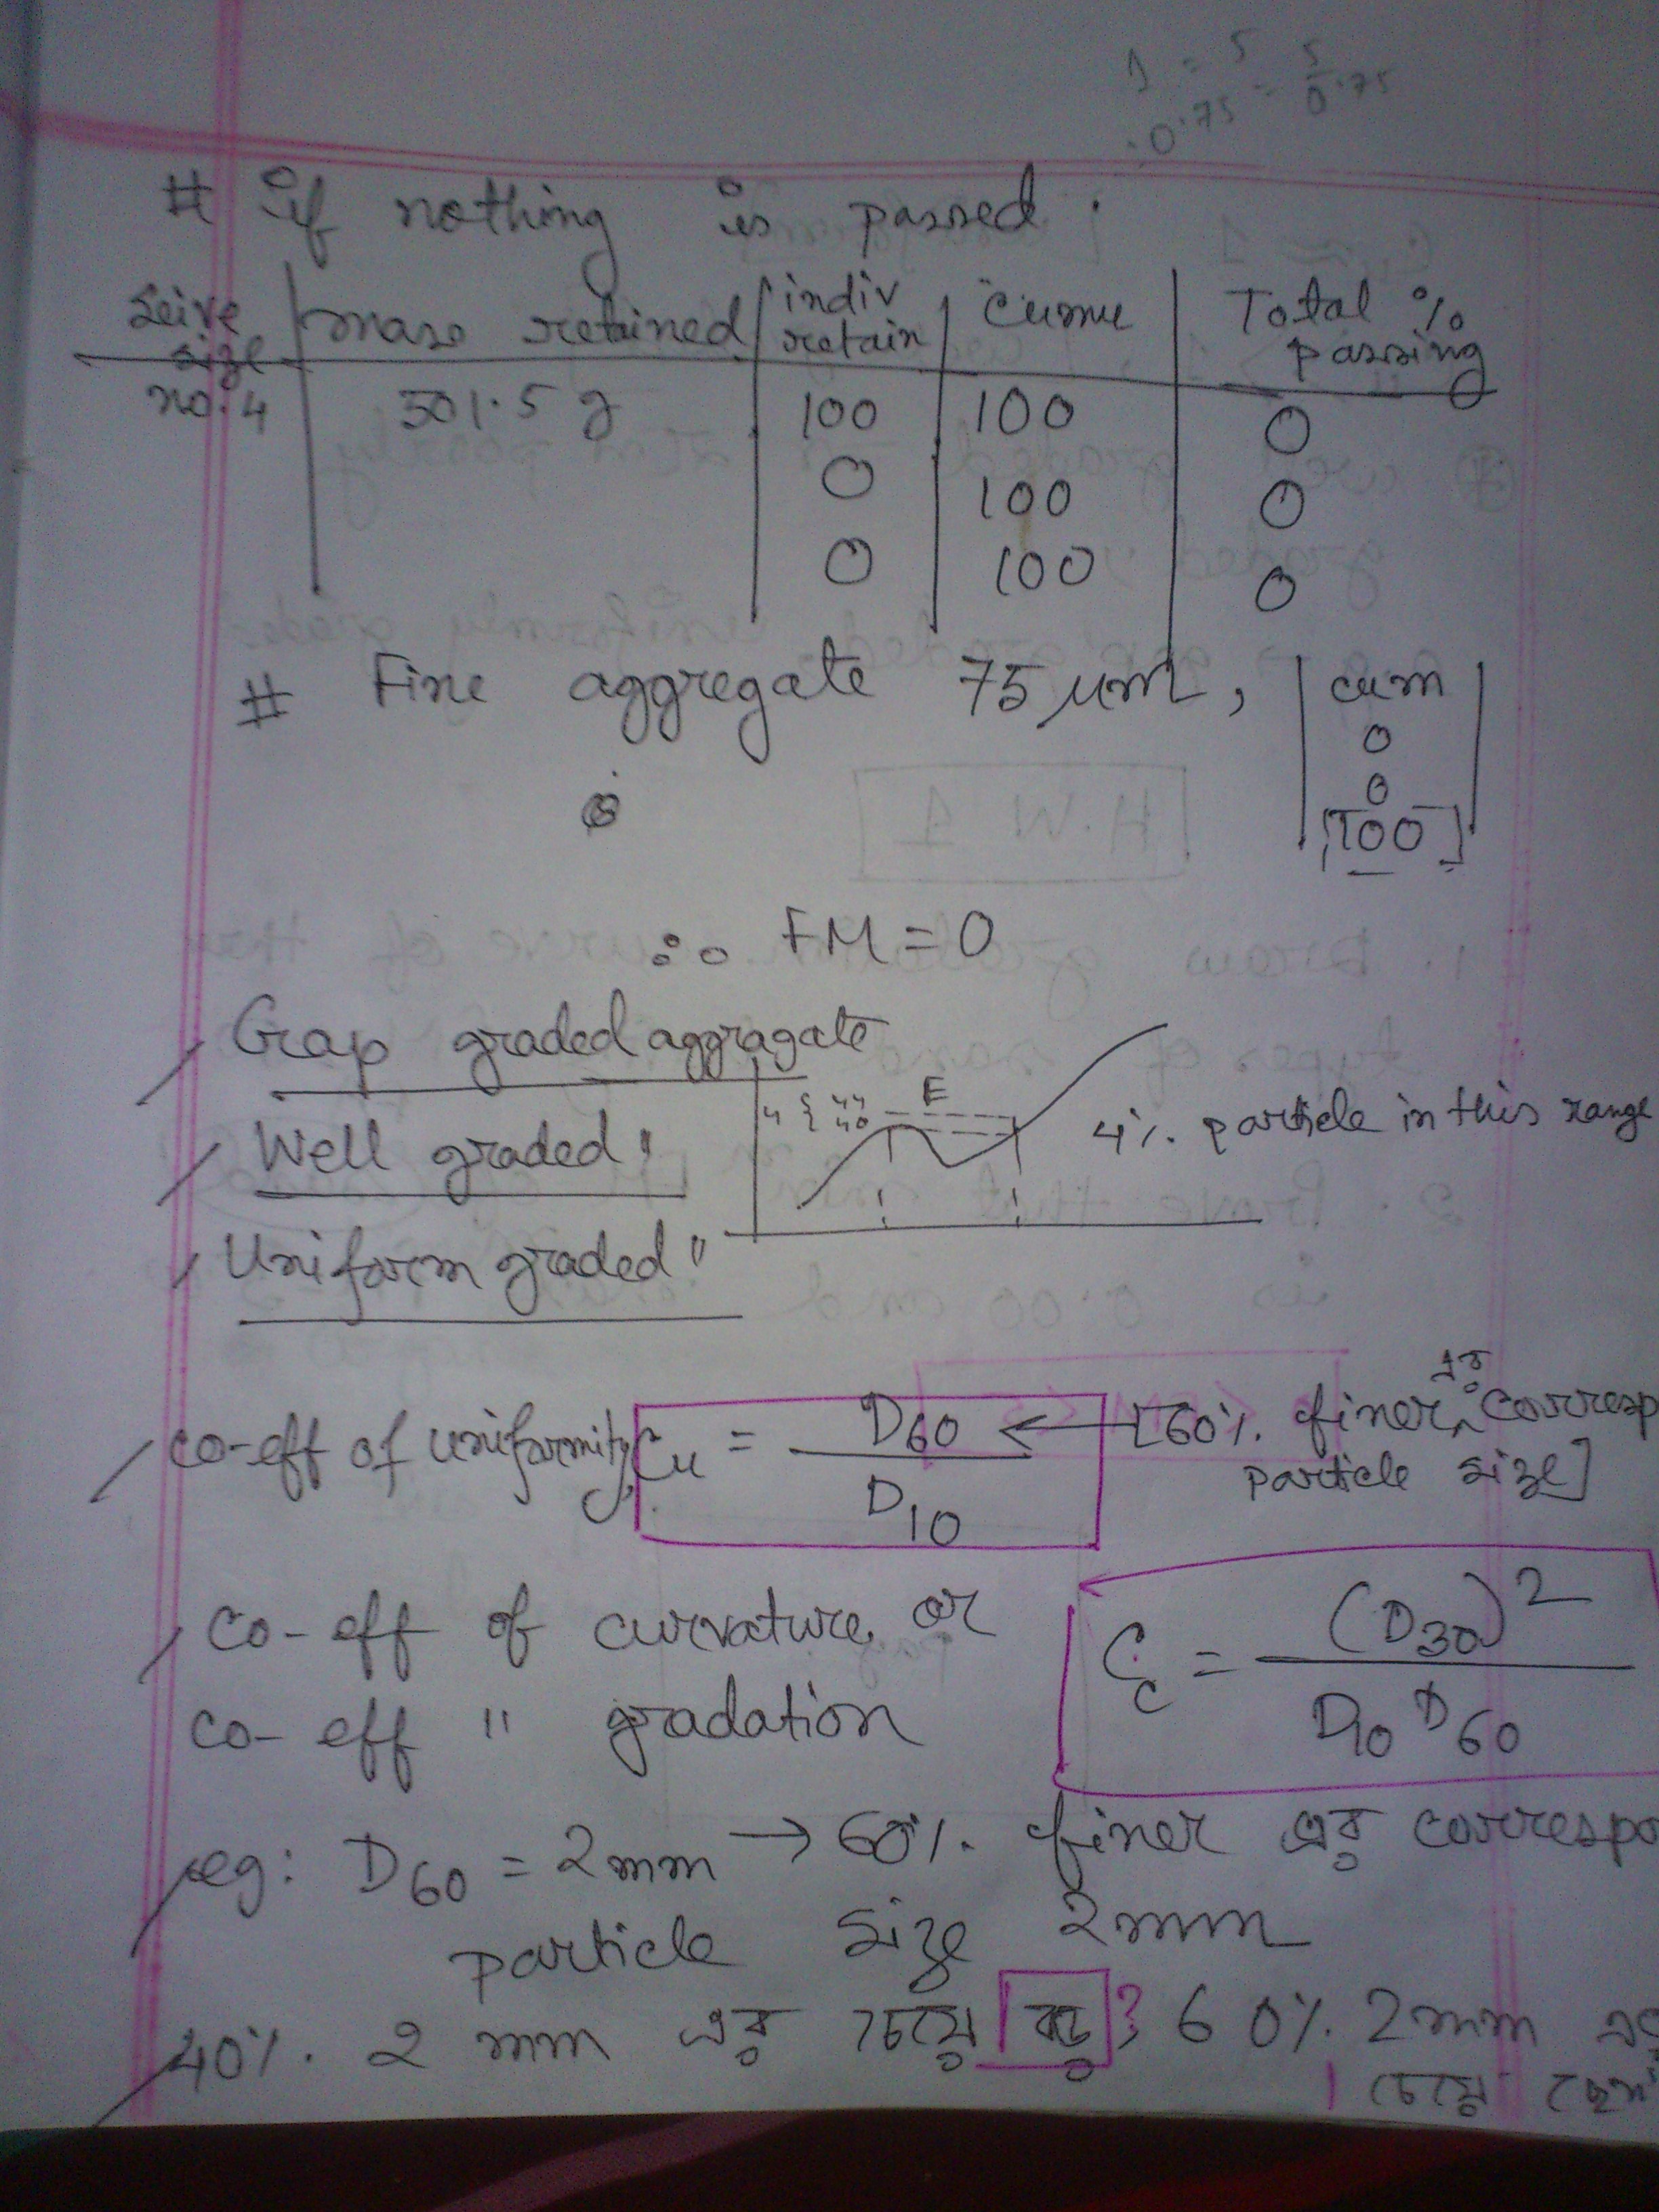 # if nothing is passed.
Seive size | mass retained | indiv retain | cumu | Total % passing
no. 4 | 501.5 g | 100 | 100 | 0
0 | 100 | 0
0 | 100 | 0
# Fine aggregate 75 μm, | cum |
0
0
[100]
∴ FM = 0
Gap graded aggragate
Well graded "
Uniform graded "
4 { 44 40
E
4% particle in this range
co-eff of uniformity, Cu = D60 / D10 ← [60% finer এর corresp
particle size]
co-eff of curvature or
co-eff " gradation
Cc = (D30)2 / D10 D60
eg: D60 = 2mm → 60% finer এর correspo
particle size 2mm
40% 2 mm এর চেয়ে বড় ; 60% 2mm এর
চেয়ে